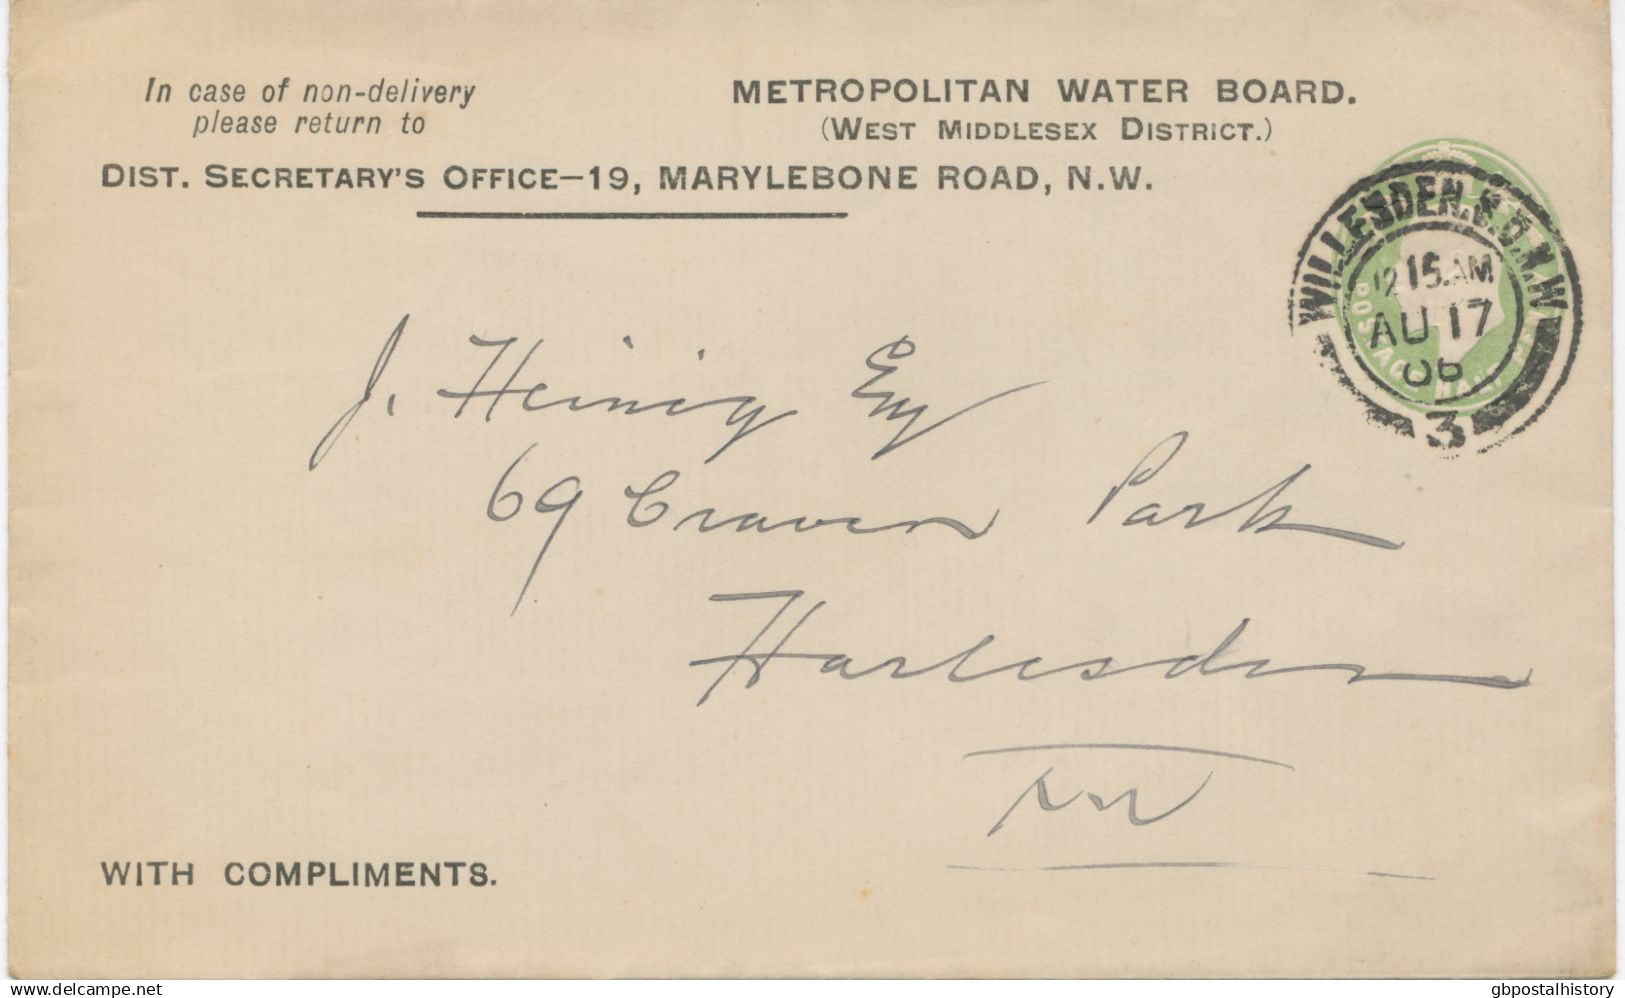 In case of non-delivery
please return to
METROPOLITAN WATER BOARD.
(WEST MIDDLESEX DISTRICT.)
DIST. SECRETARY'S OFFICE—19, MARYLEBONE ROAD, N.W.
WILLESDEN.S.O.N.W
12 15.AM
AU 17
06
3
POSTAGE HALFPENNY
J. Heinig Esq
69 Craven Park
Harlesden
NW
WITH COMPLIMENTS.
delcampe.net
gbpostalhistory